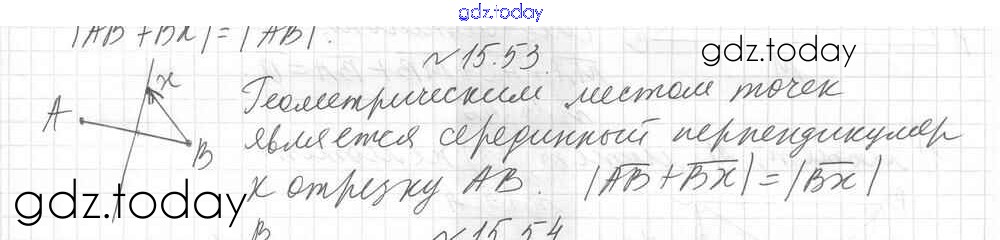 gdz.today
|AB + BX| = |AB|.
~ 15.53.
gdz.today
Геометрическим местом точек
является серединный перпендикуляр
к отрезку AB. |AB + BX| = |BX|
A
X
B
gdz.today
B
~ 15.54